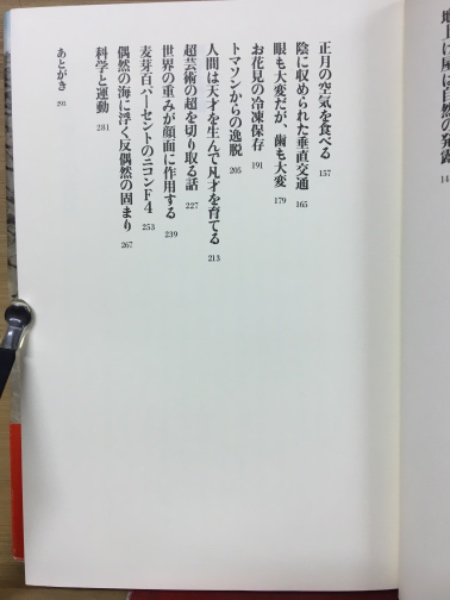 地上げ屋は自然の発露
14
正月の空気を食べる 157
陰に収められた垂直交通 165
眼も大変だが、歯も大変 179
お花見の冷凍保存 191
トマソンからの逸脱 205
人間は天才を生んで凡才を育てる 213
超芸術の超を切り取る話 227
世界の重みが顔面に作用する 239
麦芽百パーセントのニコンF4 253
偶然の海に浮く反偶然の固まり 267
科学と運動 281
あとがき 293